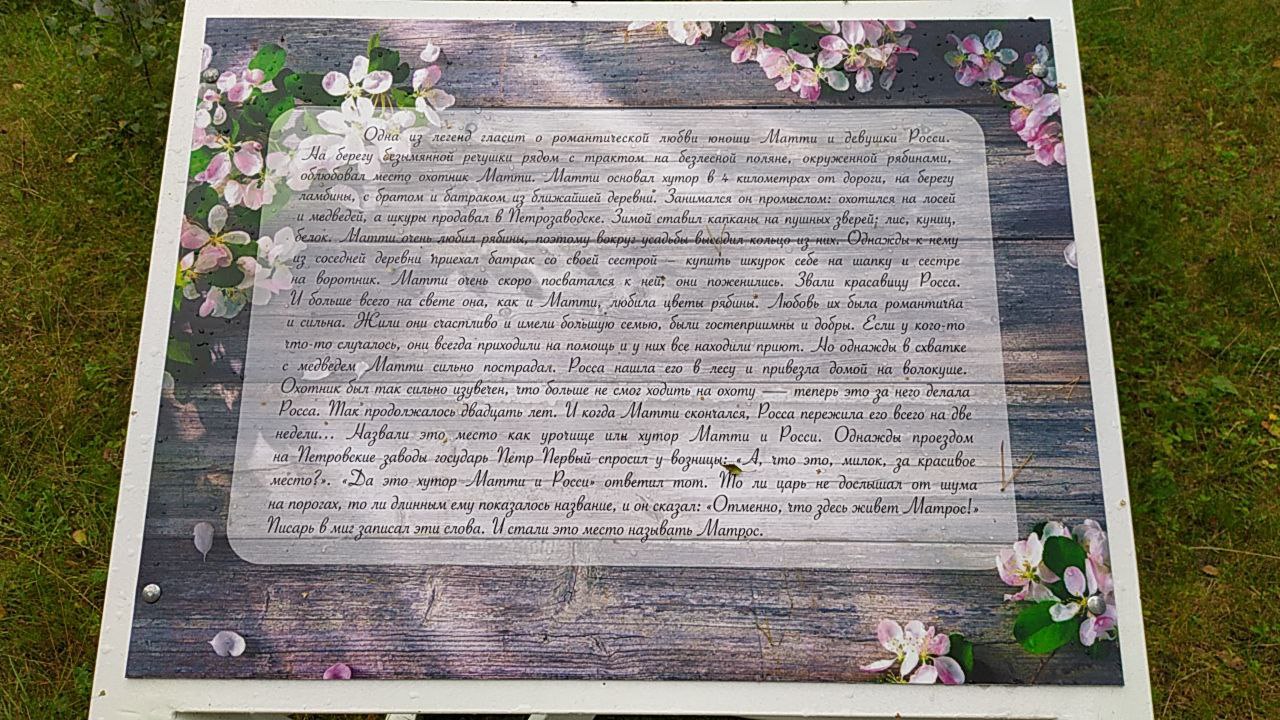 Одна из легенд гласит о романтической любви юноши Матти и девушки Росси.
На берегу безымянной речушки рядом с трактом на безлесной поляне, окруженной рябинами,
облюбовал место охотник Матти. Матти основал хутор в 4 километрах от дороги, на берегу
ламбины, с братом и батраком из ближайшей деревни. Занимался он промыслом: охотился на лосей
и медведей, а шкуры продавал в Петрозаводске. Зимой ставил капканы на пушных зверей; лис, куниц,
белок. Матти очень любил рябины, поэтому вокруг усадьбы высадил кольцо из них. Однажды к нему
из соседней деревни приехал батрак со своей сестрой — купить шкурок себе на шапку и сестре
на воротник. Матти очень скоро посватался к ней; они поженились. Звали красавицу Росса.
И больше всего на свете она, как и Матти, любила цветы рябины. Любовь их была романтична
и сильна. Жили они счастливо и имели большую семью, были гостеприимны и добры. Если у кого-то
что-то случалось, они всегда приходили на помощь и у них все находили приют. Но однажды в схватке
с медведем Матти сильно пострадал. Росса нашла его в лесу и привезла домой на волокуше.
Охотник был так сильно изувечен, что больше не смог ходить на охоту — теперь это за него делала
Росса. Так продолжалось двадцать лет. И когда Матти скончался, Росса пережила его всего на две
недели... Назвали это место как урочище или хутор Матти и Росси. Однажды проездом
на Петровские заводы государь Петр Первый спросил у возницы: «А, что это, милок, за красивое
место?». «Да это хутор Матти и Росси» ответил тот. То ли царь не дослышал от шума
на порогах, то ли длинным ему показалось название, и он сказал: «Отменно, что здесь живет Матрос!»
Писарь в миг записал эти слова. И стали это место называть Матрос.